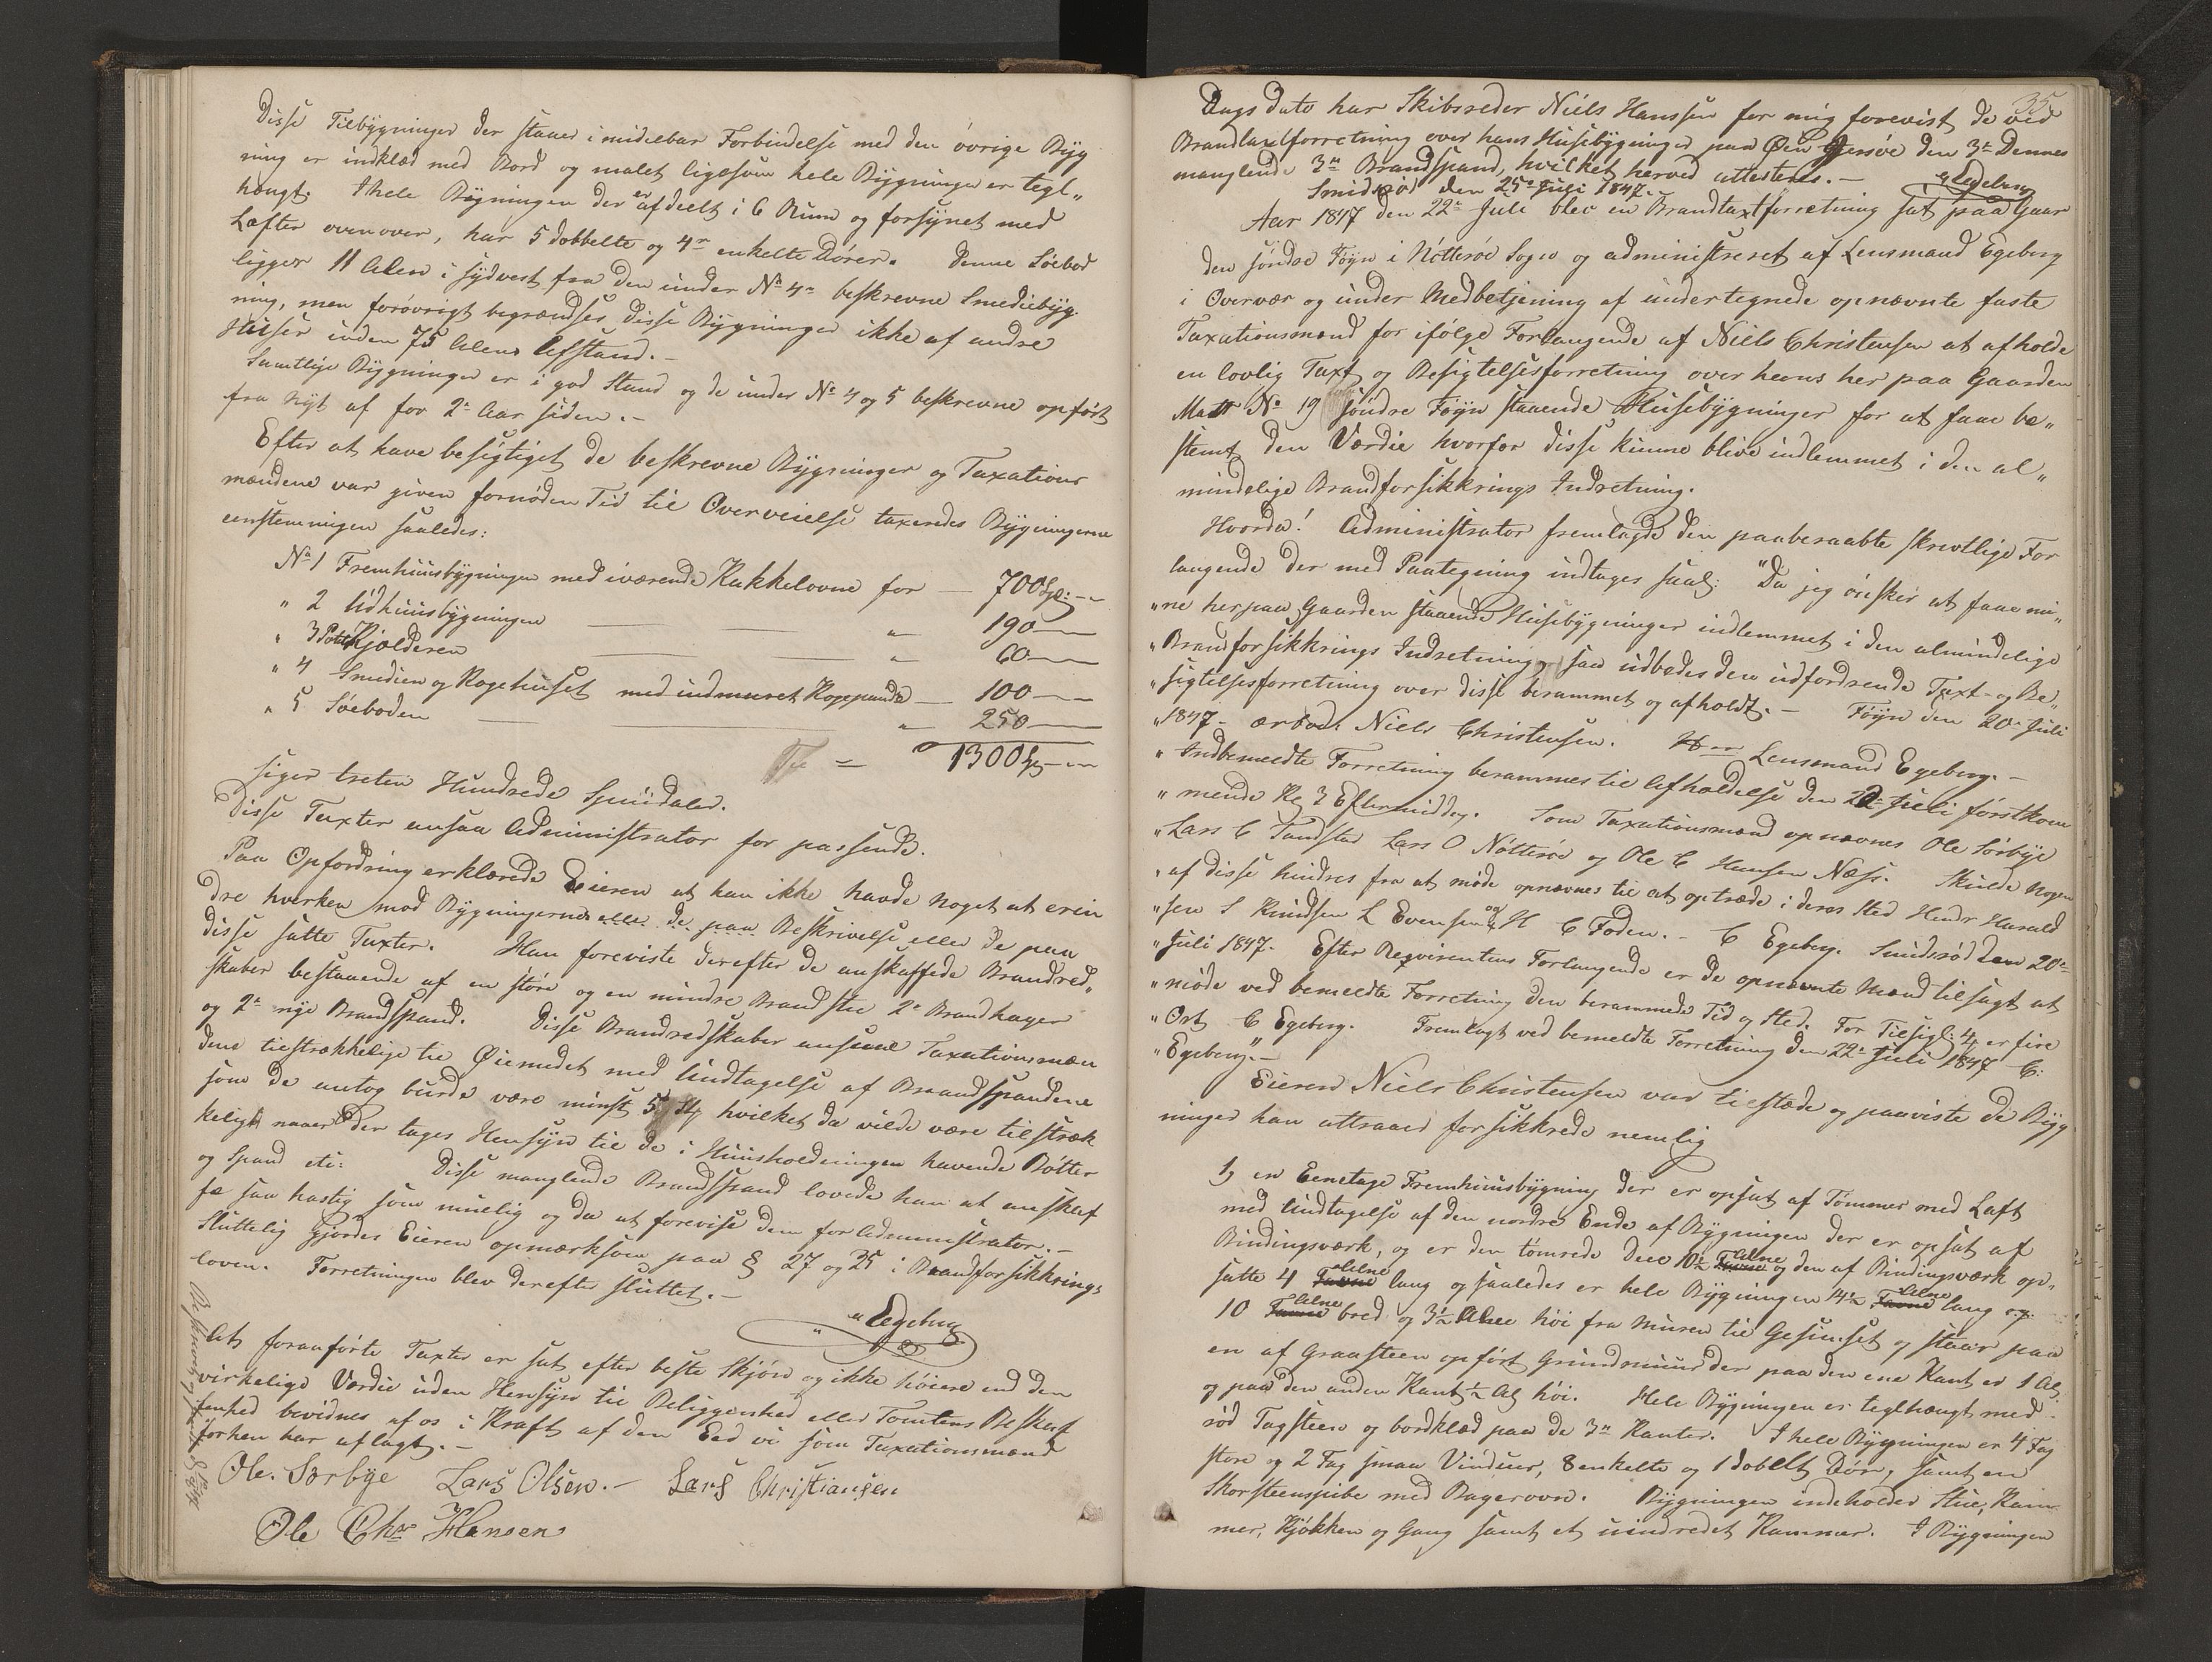 Disse Tilbygninger der staaer i midelbar Forbindelse med den övrige Byg
ning er indklæd med Bord og malet ligesom hele Bygningen er tegl„
hængt. I hele Bygningen der er afdeelt i 6 Rum og forsynet med
Lofter ovenover, har 5 dobbelte og 4re enkelte Dörer. Denne Söebod
ligger 11 Alen i sydvest fra den under No 4re beskrevne Smediebyg
ning, men forövrigt begrændses disse Bygninger ikke af andre
Huser inden 75 Alens Afstand.-
Samtlige Bygninger er i god Stand og de under No 4 og 5 beskrevne opfört
fra nyt af for 2e Aar siden.-
Efter at have besigtiget de beskrevne Bygninger og Taxations
mændene var given fornöden Tid til Overveielse taxeredes Bygningerne
eenstemmigen saaledes:
No 1 Fremhuusbygningen med iværende Kakkelovne for - 700 Spd: -
" 2 Udhuusbygningen " 190 -
" 3 Potetkjælderen " 60 -
" 4 Smedien og Kogehuset med indmuret Kogepande - 100 -
" 5 Söeboden " 250 -
= 1300 Spd -
siger tretten Hundrede Speciedaler.
Disse Taxter ansaa Administrator for passende.
Paa Opfordring erklærede Eieren at han ikke havde noget at erin
dre hverken mod Bygningernes eller de paa Beskrivelse eller de paa
disse satte Taxter. Han foreviste derefter de anskaffede Brandred„
skaber bestaaende af en störe og en mindre Brandstie 2e Brandhager
og 2e nye Brandspand. Disse Brandredskaber ansaae Taxationsmæn
dene tilstrækkelige til Öiemedet med Undtagelse af Brandspandene
som de antog burde være minst 5 Stk hvilket da vilde være tilstræk
keligt naar der tages Hensyn til de i Huusholdningen havende Bötter
og Spand etc: Disse manglende Brandspand lovede han at anskaf
fe saa hastig som muelig og da at forevise dem for Administrator.-
Sluttelig gjordes Eieren opmærksom paa § 27 og 25 i Brandforsikkrings
loven. Forretningen blev derefter sluttet.-
Egeberg
At foranförte Taxter er sat efter beste Skjön og ikke höiere end den
virkelige Værdie uden Hensyn til Beliggenhed eller Tomtens Beskaf
fenhed bevidnes af os i Kraft af den Eed vi som Taxationsmænd
forhen har aflagt.-
Ole. Sørbÿe Lars Olsen.- Lars Christiansen
Ole Chr Hansen
35
Dags dato har Skibsreder Niels Hanssen for mig forevist de ved
Brandtaxtforretning over hans Huusebygninger paa Øen Gjersöe den 3e Dennes
manglende 3de Brandspand, hvilket herved attesteres.-
Smidsröd den 25e Juli 1847. Egeberg
Aar 1847 den 22e Juli blev en Brandtaxtforretning sat paa Gaar
den söndre Föyn i Nötteröe Sogn og administreret af Lensmand Egeberg
i Overvær og under Medbetjening af undertegnede opnævnte faste
Taxationsmænd for ifölge Forlangende af Niels Christensen at afholde
en lovlig Taxt og Besigtelsesforretning over hans her paa Gaarden
Matr No 19 söndre Föyn staaende Huusebygninger for at faae be„
stemt den Værdie hvorfor disse kunne blive indlemmet i den al„
mindelige Brandforsikkrings Indretning.
Hvorda! Administrator fremlagde den paaberaabte skrevtlige For
langende der med Paategning indtages saal: "Da jeg önsker at faae mi„
"ne her paa Gaarden staaende Huusebygninger indlemmet i den almindelige
"Brandforsikkrings Indretning, saa udbedes den udfordrende Taxt- og Be„
"sigtelsesforretning over disse berammet og afholdt.- Föyn den 20e Juli
"1847- ærbødt Niels Christensen. Hrr Lensmand Egeberg.-
"Indbemeldte Forretning berammes til Afholdelse den 22e Juli förstkom
"mende Kl 3 Eftermiddag. Som Taxationsmænd opnævnes Ole Sörbye
"Lars C Tandstad Lars O Nötteröe og Ole C Hansen Næss. Skulde nogen
"af disse hindres fra at möde opnævnes til at optræde i deres Sted Hendr Harald
"sen S Knudsen L Evensen og H C Foden.- C Egeberg. Smidsröd den 20e
"Juli 1847. Efter Reqvirentens Forlangende er de opnævnte Mænd tilsagt at
"möde ved bemeldte Forretning den berammede Tid og Sted. For Tilsigl: 4 er fire
"Ort C Egeberg. Fremlagt ved bemeldte Forretning den 22e Juli 1847 C:
"Egeberg."-
Eieren Niels Christensen var tilstæde og paaviste de Byg
ninger han attraaer forsikkrede nemlig
1, en Eenetage Fremhuusbygning der er opsat af Tömmer med Laft
med Undtagelse af den nordre Ende af Bygningen der er opsat af
Bindingsværk, og er den tömrede Deel 10½ Favne Alne og den af Bindingsværk op„
satte 4 Favne Alne lang og saaledes er hele Bygningen 14½ Favne Alne lang og
10 Favne Alne bred og 3½ Alen höi fra Muren til Gesimset og staaer paa
en af Graasteen opfört Grundmuur der paa den ene Kant er 1 Al
og paa den anden Kant ½ Al höi. Hele Bygningen er teglhængt med
röd Tagsteen og bordklæd paa de 3de Kanter. I hele Bygningen er 4 Fag
store og 2 Fag smaa Vinduer, 8 enkelte og 1 dobelt Dör, samt en
Skorsteenspibe med Bagerovn. Bygningen indeholder Stue, Kam
mer, Kjökken og Gang samt et uindredet Kammer. I Bygningen